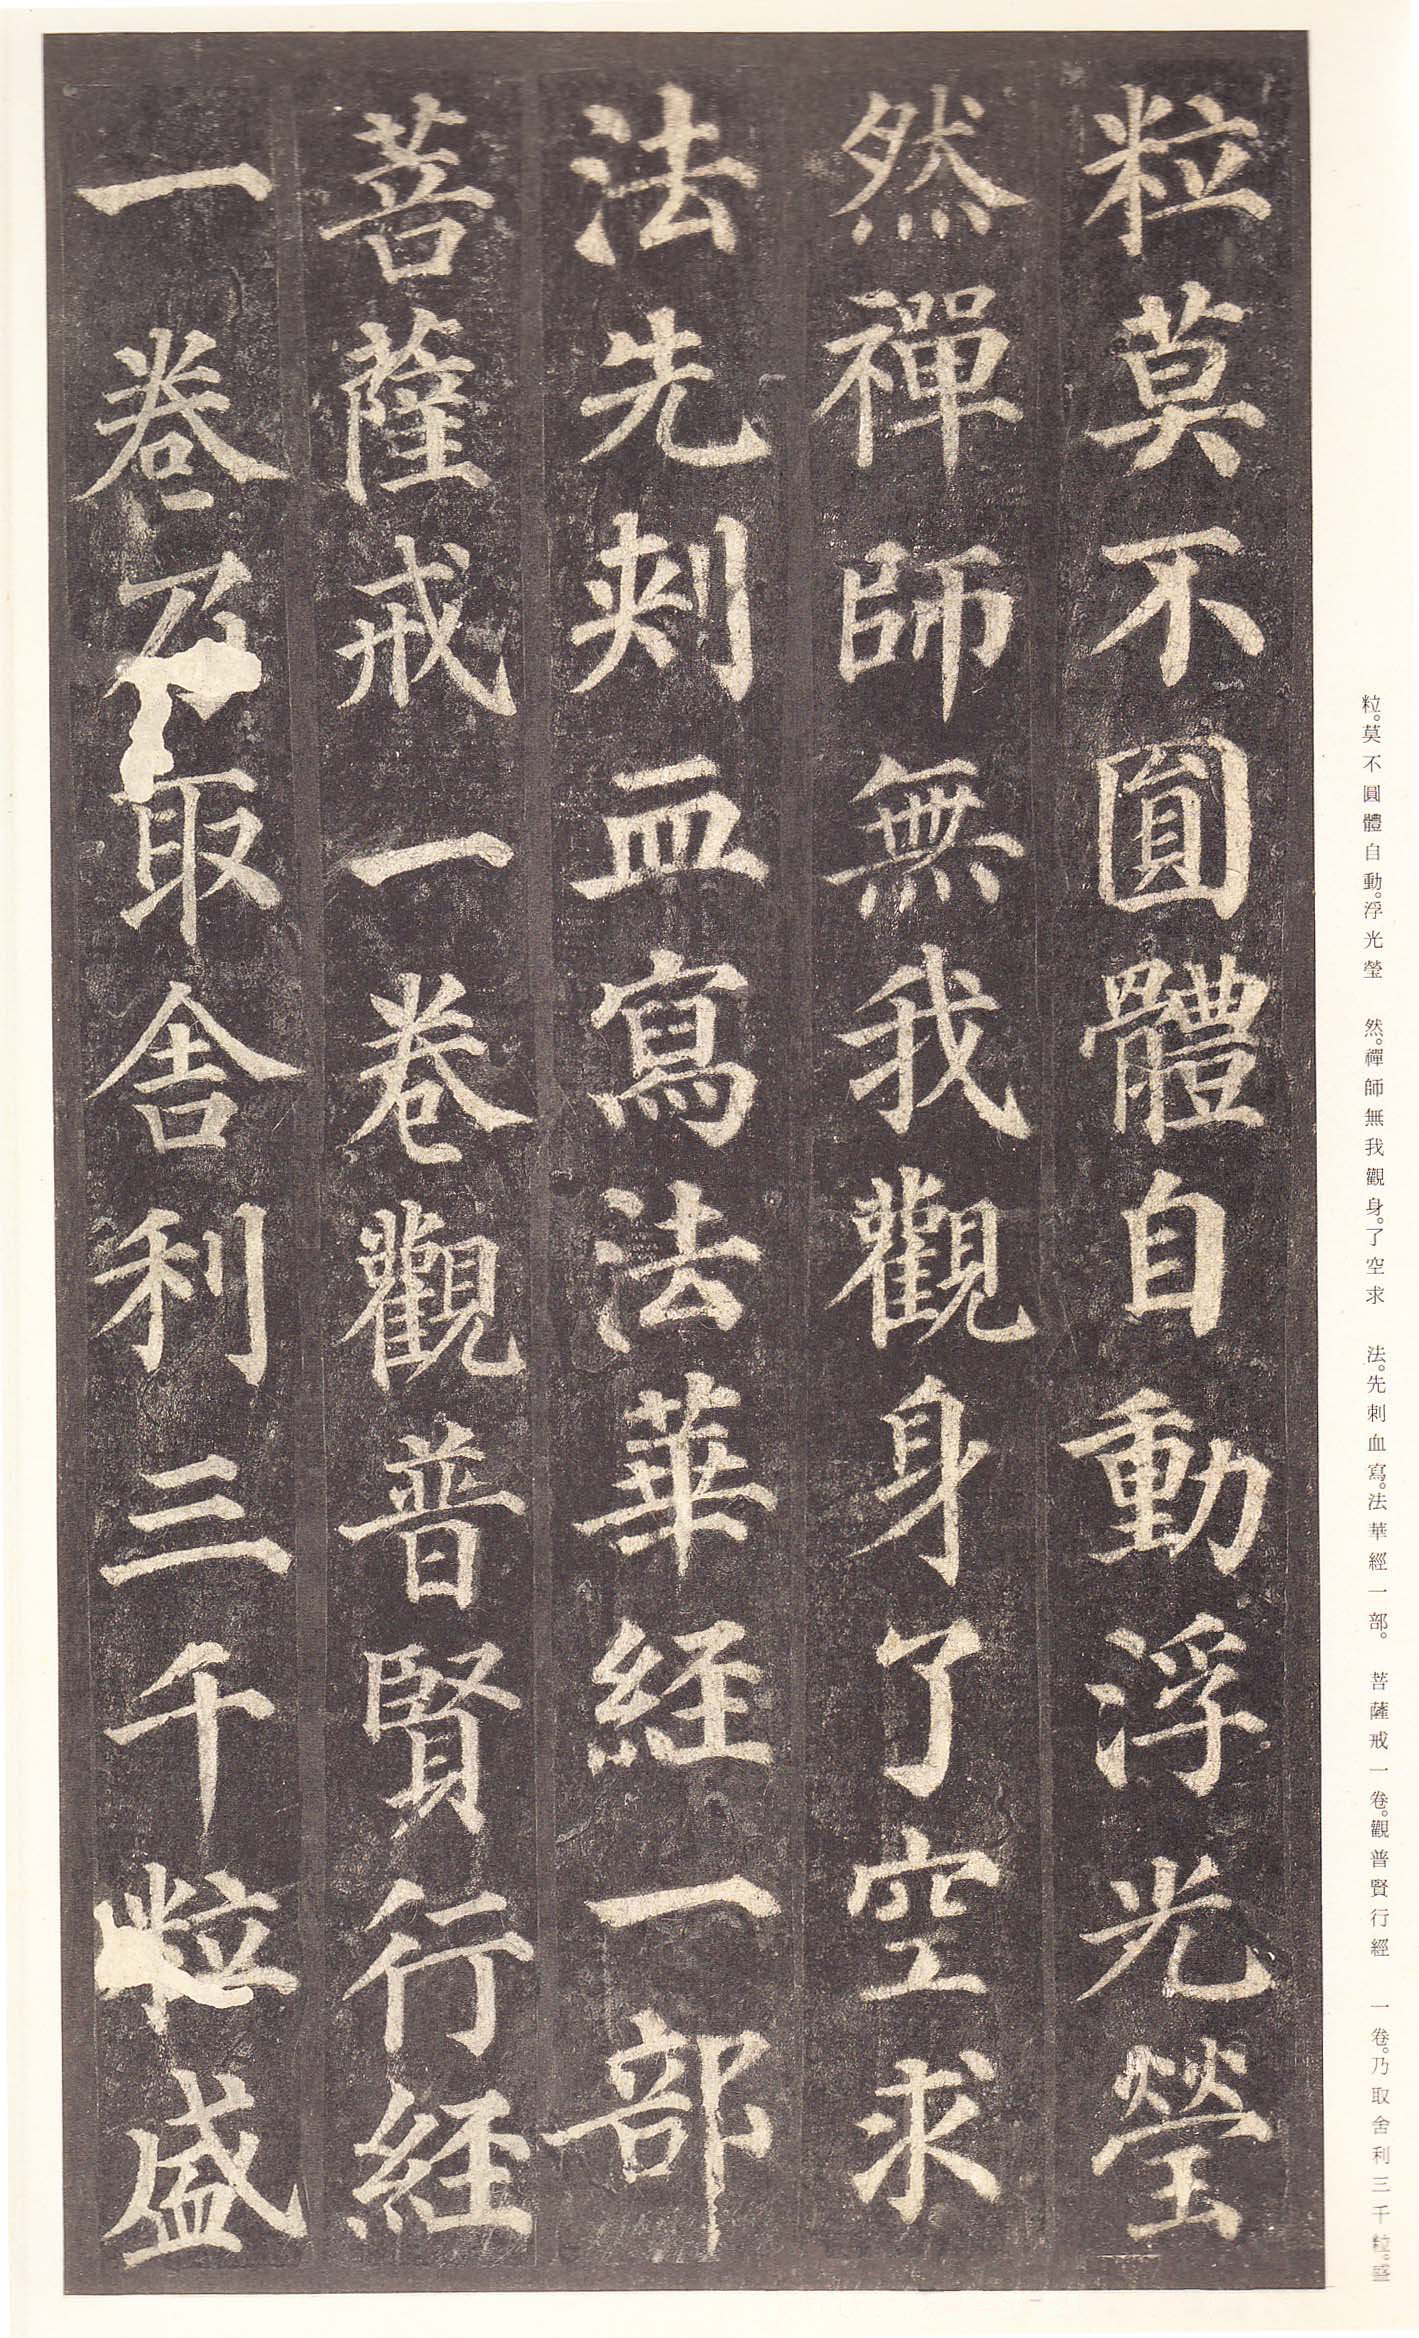 粒莫不圓體自動浮光瑩
然禪師無我觀身了空求
法先刺血寫法華經一部
菩薩戒一卷觀普賢行經
一卷乃取舍利三千粒盛
粒。莫不圓體自動。浮光瑩　然。禪師無我觀身。了空求　法。先刺血寫。法華經一部。　菩薩戒一卷。觀普賢行經　一卷。乃取舍利三千粒。盛